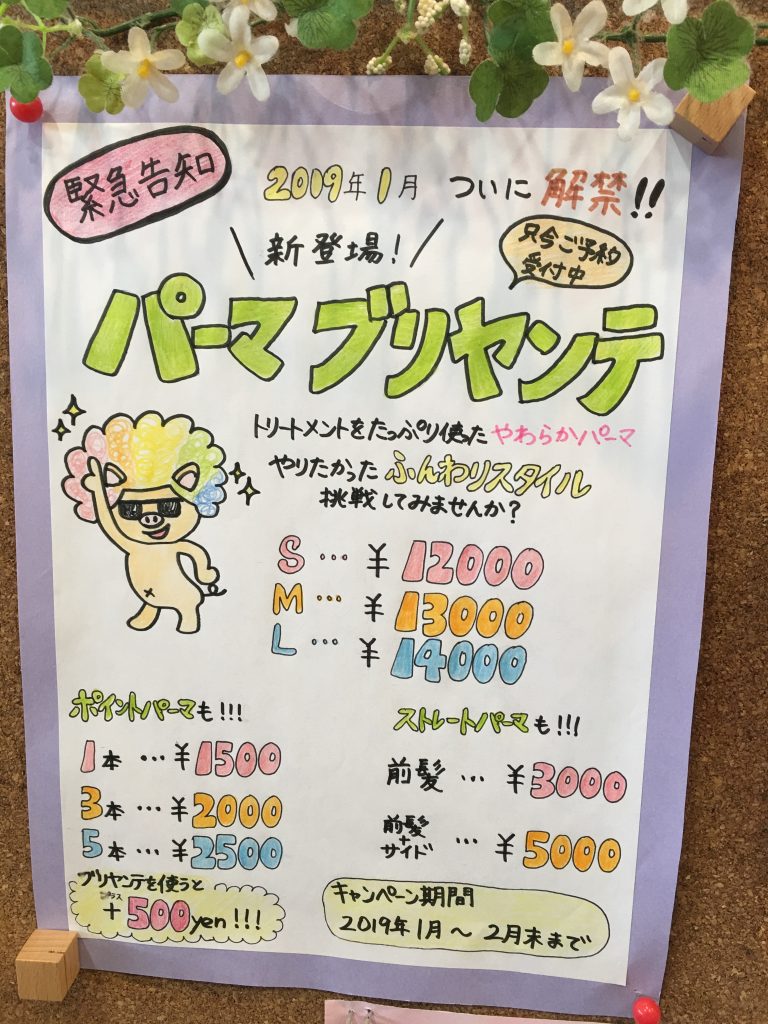 緊急告知
2019年1月 ついに 解禁!!
新登場!
只今ご予約
受付中
パーマ ブリヤンテ
トリートメントをたっぷり使った やわらかパーマ
やりたかった ふんわりスタイル
挑戦してみませんか?
S … ¥12000
M … ¥13000
L … ¥14000
ポイントパーマも!!!
1本 … ¥1500
3本 … ¥2000
5本 … ¥2500
ブリヤンテを使うと
プラス
+500yen!!!
ストレートパーマも!!!
前髪 … ¥3000
前髪
+
サイド … ¥5000
キャンペーン期間
2019年1月~2月末まで